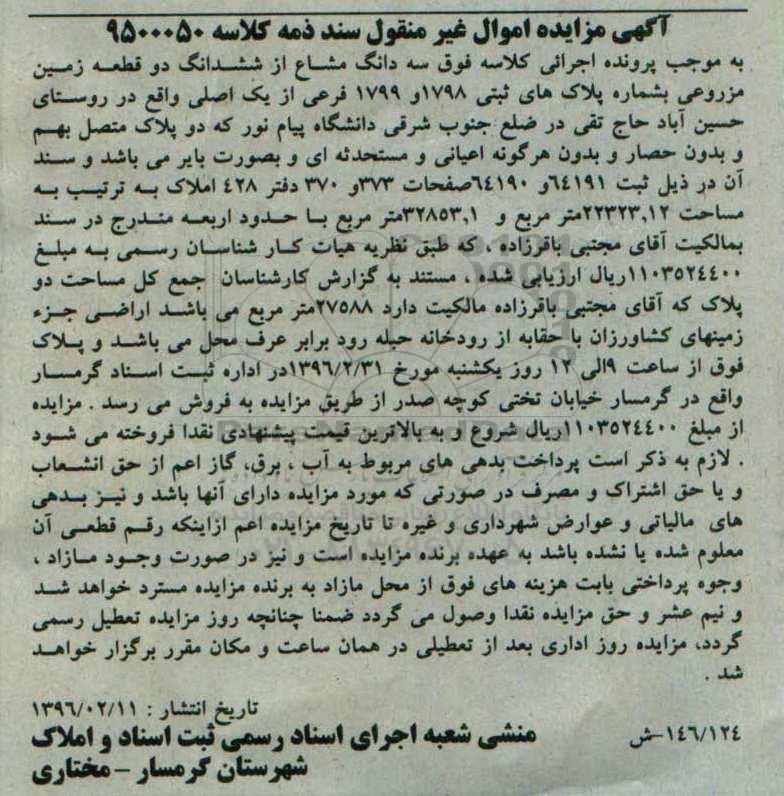 آگهی مزایده اموال غیر منقول سند ذمه کلاسه ۹۵۰۰۰۵۰
به موجب پرونده اجرائی کلاسه فوق سه دانگ مشاع از ششدانگ دو قطعه زمین
مزروعی بشماره پلاک های ثبتی ۱۷۹۸و ۱۷۹۹ فرعی از یک اصلی واقع در روستای
حسین آباد حاج تقی در ضلع جنوب شرقی دانشگاه پیام نور که دو پلاک متصل بهم
و بدون حصار و بدون هرگونه اعیانی و مستحدثه ای و بصورت بایر می باشد و سند
آن در ذیل ثبت ۶۴۱۹۱و ۶۴۱۹۰صفحات ۳۷۳و ۳۷۰ دفتر ۴۲۸ املاک به ترتیب به
مساحت ۲۲۳۲۳,۱۲متر مربع و ۳۲۸۵۳,۱متر مربع با حدود اربعه مندرج در سند
بمالکیت آقای مجتبی باقرزاده ، که طبق نظریه هیات کار شناسان رسمی به مبلغ
۱۱۰۳۵۲۴۴۰۰ریال ارزیابی شده ، مستند به گزارش کارشناسان جمع کل مساحت دو
پلاک که آقای مجتبی باقرزاده مالکیت دارد ۲۷۵۸۸متر مربع می باشد اراضی جزء
زمینهای کشاورزان با حقابه از رودخانه حبله رود برابر عرف محل می باشد و پلاک
فوق از ساعت ۹الی ۱۲ روز یکشنبه مورخ ۱۳۹۶/۲/۳۱در اداره ثبت اسناد گرمسار
واقع در گرمسار خیابان تختی کوچه صدر از طریق مزایده به فروش می رسد . مزایده
از مبلغ ۱۱۰۳۵۲۴۴۰۰ریال شروع و به بالاترین قیمت پیشنهادی نقدا فروخته می شود
. لازم به ذکر است پرداخت بدهی های مربوط به آب ، برق، گاز اعم از حق انشعاب
و یا حق اشتراک و مصرف در صورتی که مورد مزایده دارای آنها باشد و نیز بدهی
های مالیاتی و عوارض شهرداری و غیره تا تاریخ مزایده اعم ازاینکه رقم قطعی آن
معلوم شده یا نشده باشد به عهده برنده مزایده است و نیز در صورت وجود مازاد ،
وجوه پرداختی بابت هزینه های فوق از محل مازاد به برنده مزایده مسترد خواهد شد
و نیم عشر و حق مزایده نقدا وصول می گردد ضمنا چنانچه روز مزایده تعطیل رسمی
گردد، مزایده روز اداری بعد از تعطیلی در همان ساعت و مکان مقرر برگزار خواهد
شد .
تاریخ انتشار : ۱۳۹۶/۰۲/۱۱
۱۴۶/۱۲۴-ش
منشی شعبه اجرای اسناد رسمی ثبت اسناد و املاک
شهرستان گرمسار - مختاری